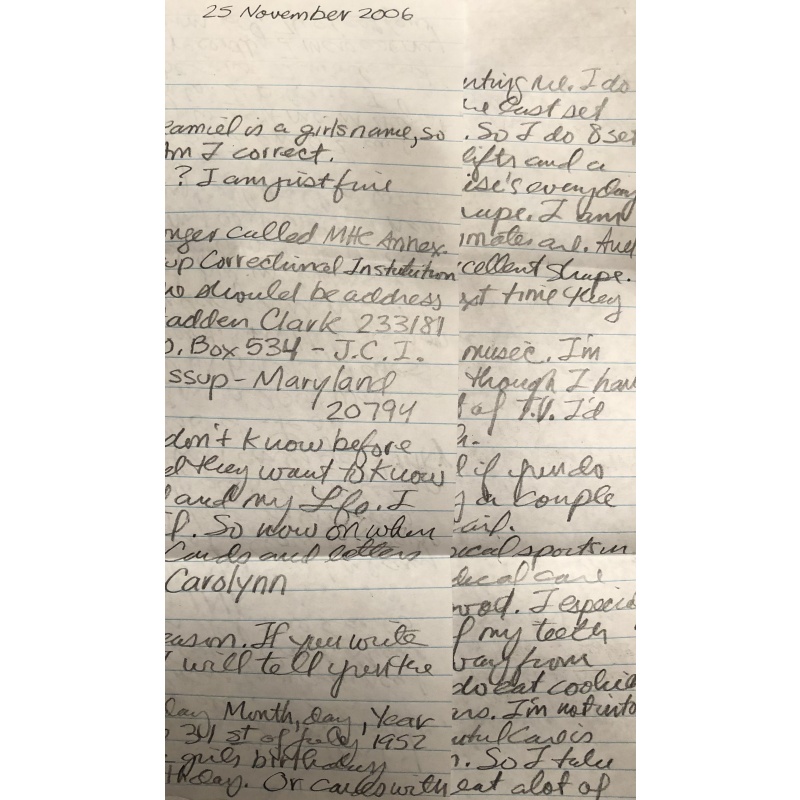 25 November 2006
is a girls name, so
I correct.
? I am just fine
nger called MHC Annex.
up Correctional Institution
should be address
adden Clark 233181
. Box 534 - J.C.I.
ssup - Maryland
20794
don't know before
they want to know
and my Life. I
. So now on when
Cards and letters
Carolynn
eason. If you write
I will tell you the
day Month, day, Year
31 st of 1952
girls birthday
thday. Or cards with
nting me. I do
last set
. So I do 8 set
lifts and a
ise's everyday
I am
mates are. And
cellent shape.
time they
music. I'm
though I hav
t of T.V. I'd
l if you do
a couple
ical sports
ical care
I especia
f my teeth
way from
do eat cookie
I'm not into
Care is
. So I take
eat alot of